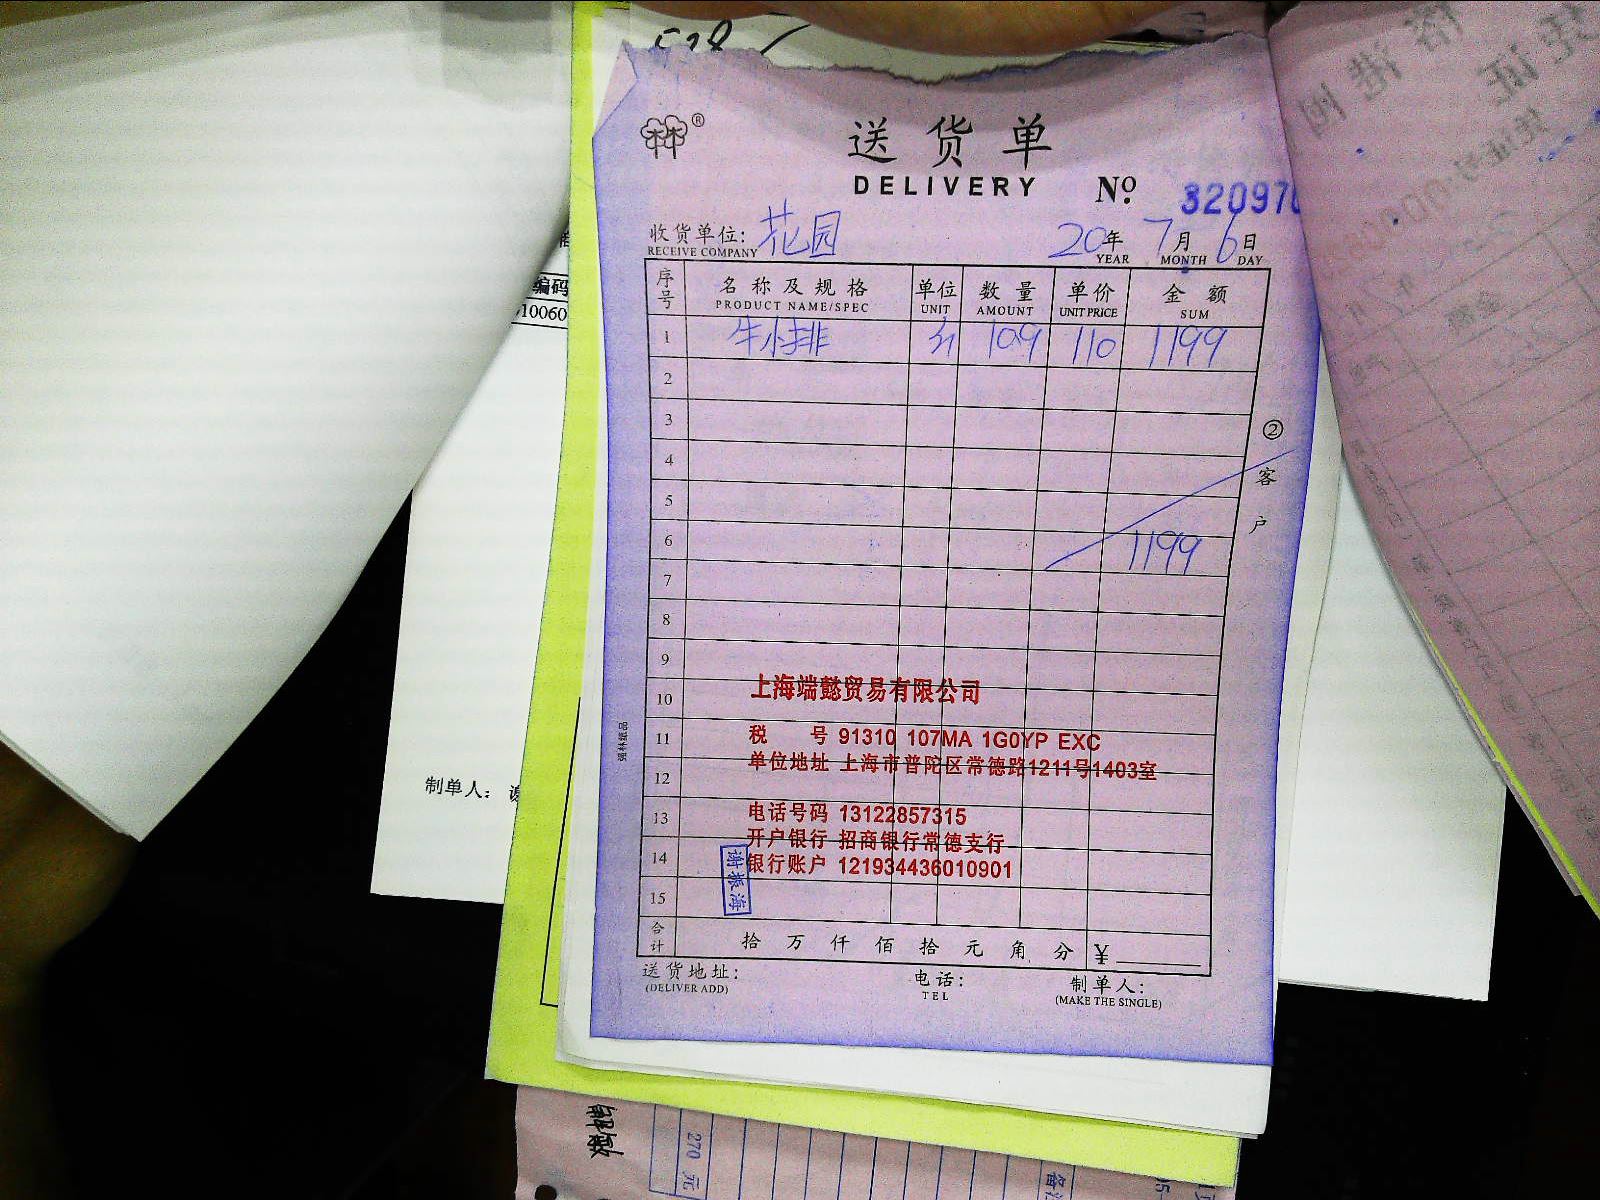 528
送货单
DELIVERY Nº 320970
收货单位: 花园 20年 7月 6日
RECEIVE COMPANY YEAR MONTH DAY
序号 名称及规格 单位 数量 单价 金额
PRODUCT NAME/SPEC UNIT AMOUNT UNIT PRICE SUM
1 牛小排 10.9 110 1199
2
3
4
5
6 1199
7
8
9
10
11
12
13
14
15
②客户
上海端懿贸易有限公司
税 号 91310 107MA 1G0YP EXC
单位地址 上海市普陀区常德路1211号1403室
电话号码 13122857315
开户银行 招商银行常德支行
银行账户 121934436010901
谢振海
合计 拾 万 仟 佰 拾 元 角 分 ¥
送货地址: 电话: 制单人:
(DELIVER ADD) TEL (MAKE THE SINGLE)
强林纸品
编码
10060
制单人:
270 元